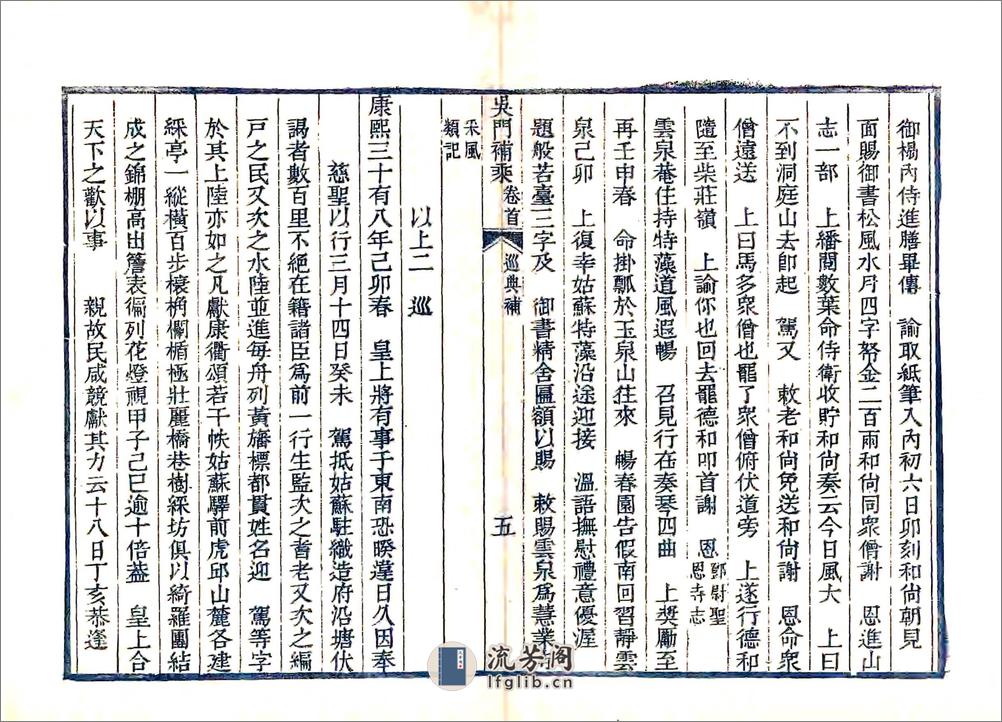 御榻內侍進膳畢傳　諭取紙筆入內初六日卯刻和尚朝見
面賜御書松風水月四字帑金二百兩和尚同衆僧謝　恩進山
志一部　上繙閱數葉命侍衛收貯和尚奏云今日風大　上曰
不到洞庭山去卽起　駕又　敕老和尚免送和尚謝　恩命衆
僧遠送　上曰馬多衆僧也罷了衆僧俯伏道旁　上遂行德和
隨至柴莊嶺　上諭你也回去罷德和叩首謝　恩鄧尉聖恩寺志
雲泉菴住持特藻道風遐暢　召見行在奏琴四曲　上奬勵至
再壬申春　命掛瓢於玉泉山往來　暢春園告假南回習靜雲
泉己卯　上復幸姑蘇特藻沿途迎接　溫語撫慰禮意優渥
題般若臺三字及　御書精舍匾額以賜　敕賜雲泉爲慧業
吳門補乘　卷首　巡典補　五
采風類記
以上二　巡
康熙三十有八年己卯春　皇上將有事于東南恐暌違日久因奉
慈聖以行三月十四日癸未　駕抵姑蘇駐織造府沿塘伏
謁者數百里不絕在籍諸臣爲前一行生監次之耆老又次之編
戶之民又次之水陸並進每舟列黃旛標都貫姓名迎　駕等字
於其上陸亦如之凡獻康衢頌若干帙姑蘇驛前虎邱山麓各建
綵亭一縱橫百步榱桷欄楯極壯麗橋巷樹綵坊俱以綺羅團結
成之錦棚高出簷表徧列花燈視甲子己巳逾十倍葢　皇上合
天下之歡以事　親故民咸競獻其力云十八日丁亥恭逢
流芳阁
lfglib.cn